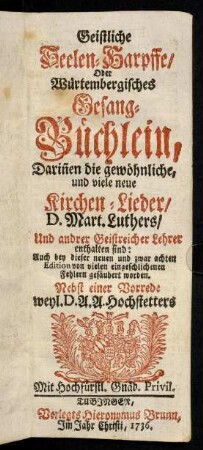 Geistliche
Seelen-Harpffe/
Oder
Würtembergisches
Gesang-
Büchlein,
Dariñen die gewöhnliche,
und viele neue
Kirchen-Lieder/
D. Mart. Luthers/
Und andrer Geistreicher Lehrer
enthalten sind:
Auch bey dieser neuen und zwar achten
Edition von vielen eingeschlichenen
Fehlern gesäubert worden.
Nebst einer Vorrede
weyl. D. A. A. Hochstetters
Mit Hochfürstl. Gnäd. Privil.
TUBINGEN,
Verlegts Hieronymus Brunn,
Im Jahr Christi, 1736.